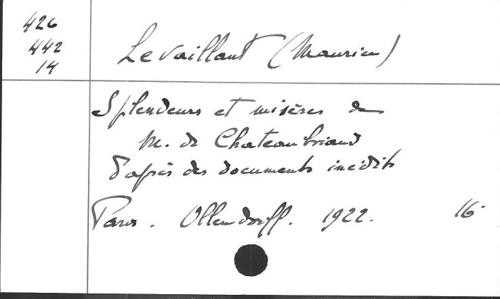 426
442
14
Levaillant (Maurice)
Splendeurs et misères de
M. de Chateaubriand
d'après des documents inédits
Paris. Ollendorff. 1922. 16°